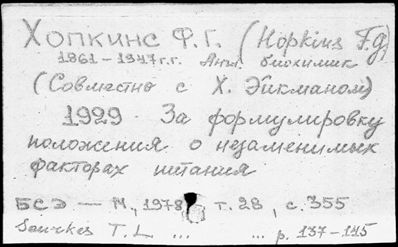 Хопкинс Ф.Г. (Hopkins F.G)
1861-1947г.г. Англ. биохимик
(Совместно с Х. Эйкманом)
1929. За формулировку
положения о незаменимых
факторах питания
БСЭ — М, 1978, т. 28, с. 355
Sourkes T.L ... ... p. 137-145